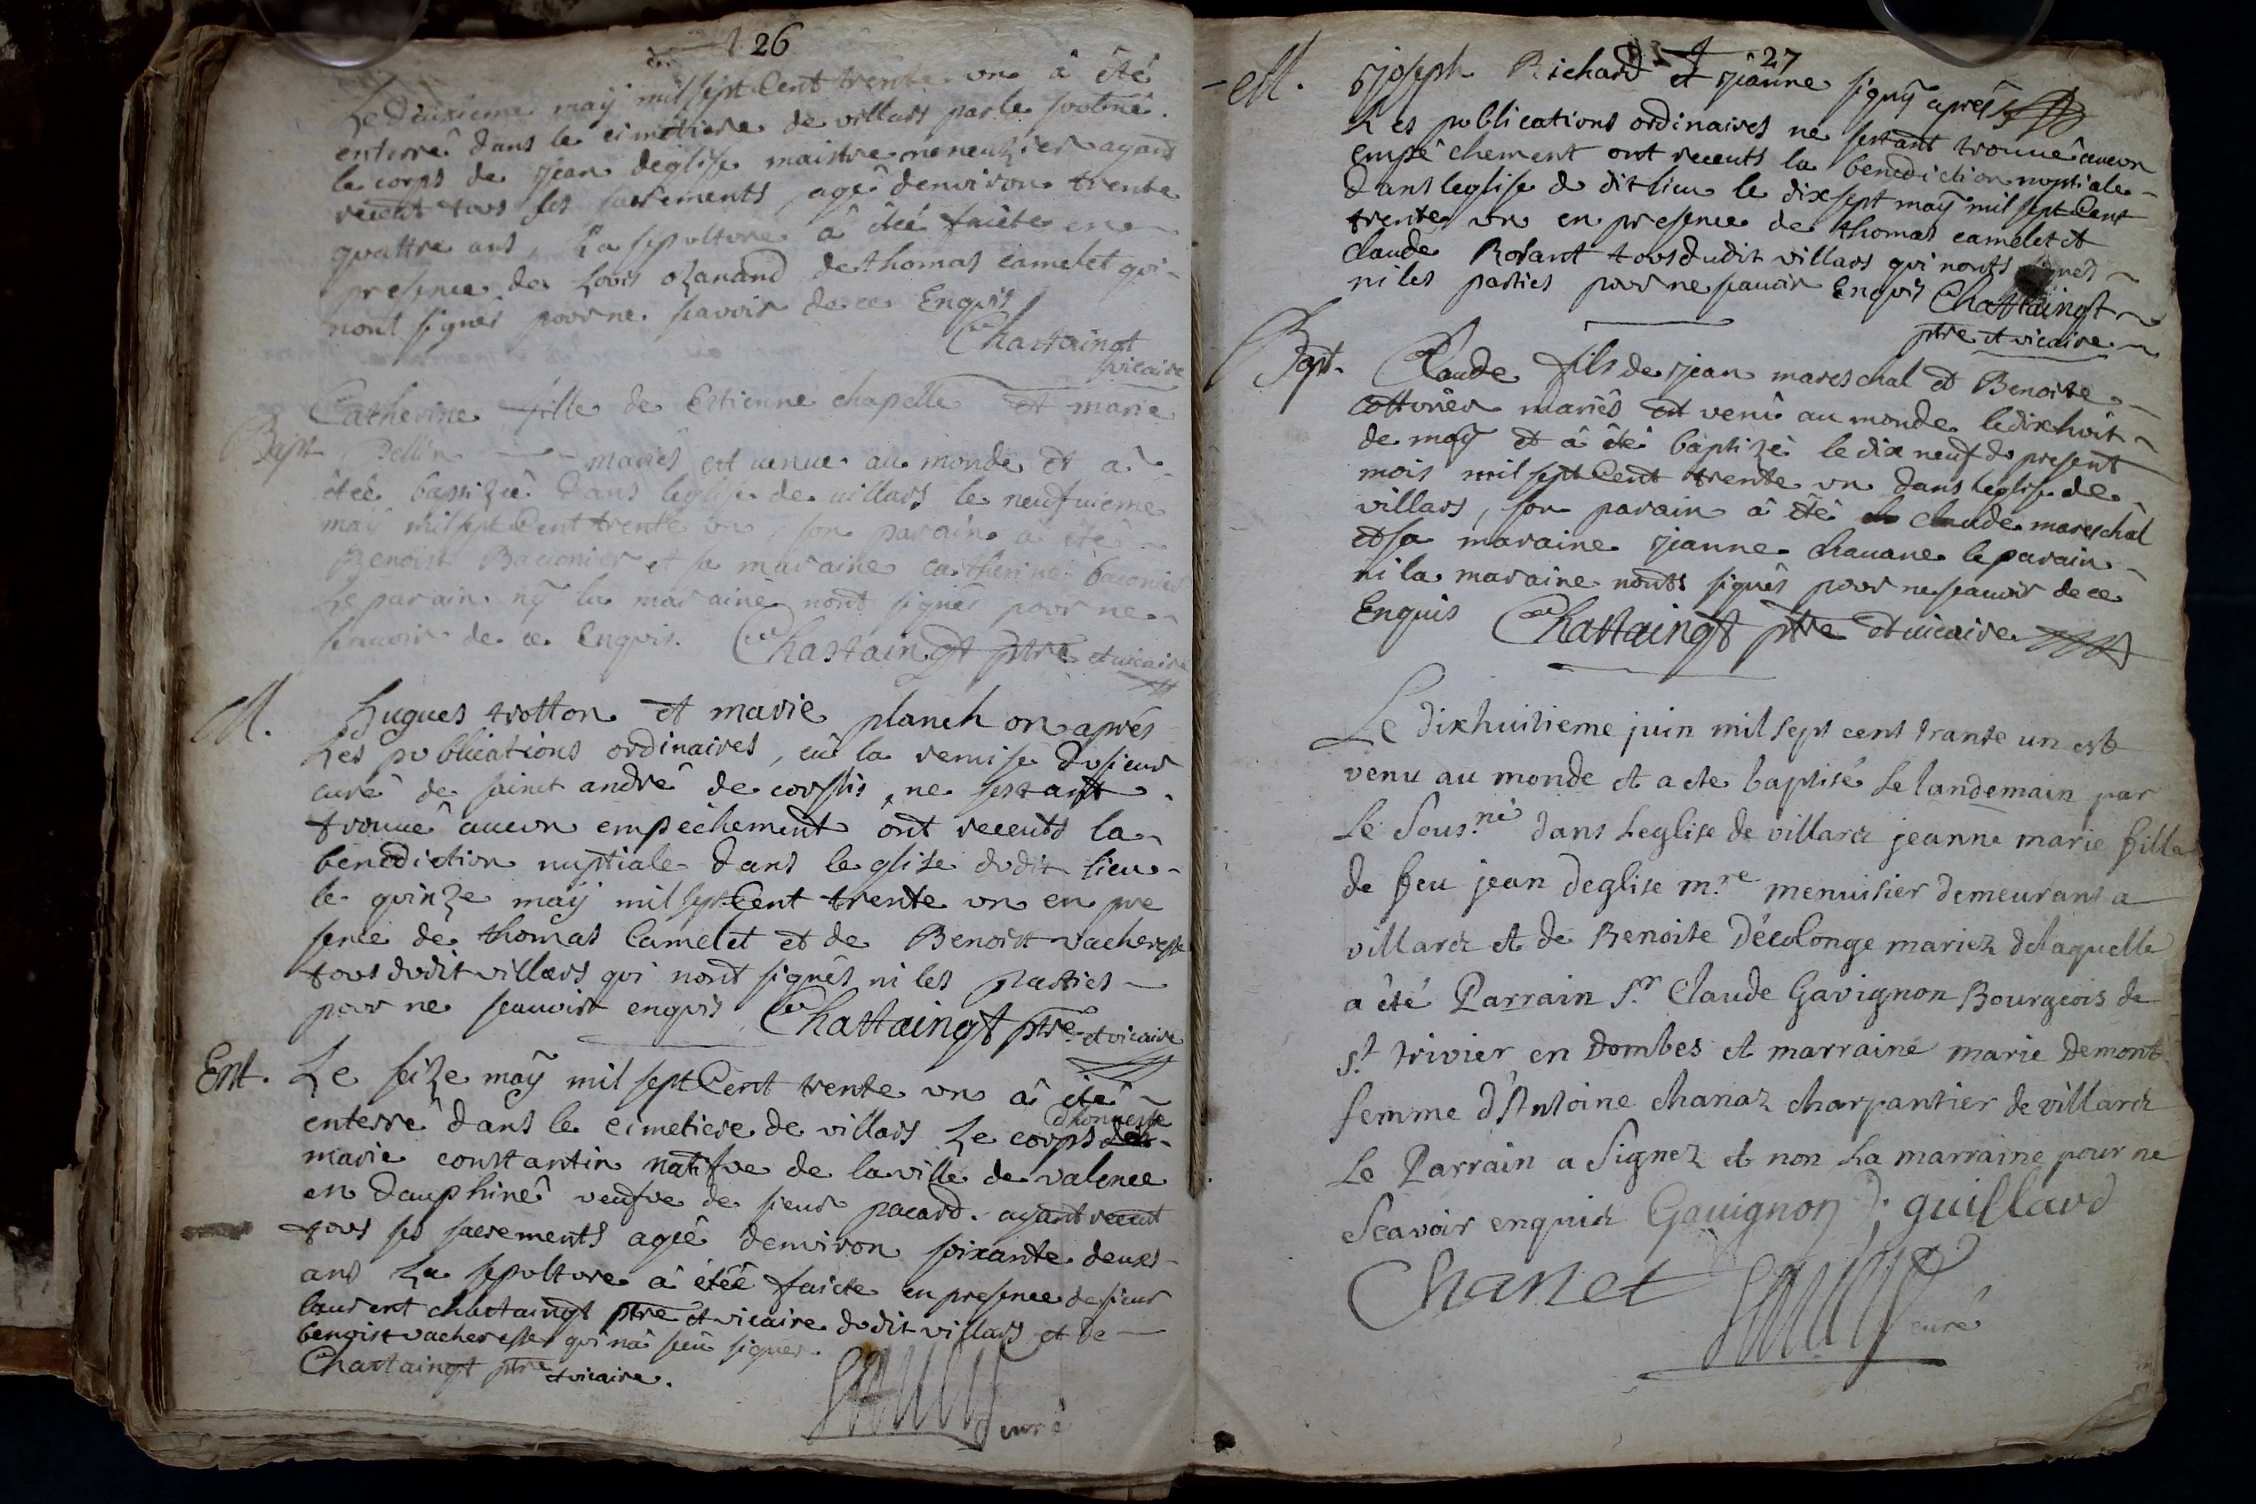 26
Le deuxieme maÿ mil sept Cent trente un â êté
enterré dans le cimetiere de villars par le soubné
le corps de Jean deglise maistre menuzier ayant
receut tous ses sacrements, agé denviron trente
quattre ans, La sepulture â étée faicte en
presence de Lovis ozanand de thomas camelet qui
nont signés pour ne scavoir de ce Enquis
Chastaingt
vicaire
Bapt.
Catherine fille de Estienne chapelle et marie
Pellin mariés est venue au monde et a
étée baptizée dans leglise de villars le neufvieme
maÿ mil sept Cent trente un, son parain a été
Benoist Baconier et sa maraine catherine baconier
Le parain nÿ la maraine nont signés pour ne
scavoir de ce Enquis. Chastaingt ptre et vicaire
M.
Hugues trotton et marie planchon aprés
Les publications ordinaires, eü la remise du sieur
curé de sainct andré de corsis, ne sestant
trouué aucun empêchement ônt receuts la
bénédiction nuptiale dans leglise dudit lieu
le quinze maÿ mil sept Cent trente un en pre
sence de thomas Camelet et de Benoist vacheresse
tous dudit villars qui nont signés ni les parties
pour ne scauoir enquis Chastaingt ptre et vicaire
Ent.
Le seize maÿ mil sept Cent trente un â été
enterré dans le cimetiere de villars Le corps dhonneste
marie constantin natifve de la ville de valence
en dauphiné veufve de sieur pacard. ayant receut
tous ses sacrements agée denviron soixante deux
ans La sepulture â étéé faicte en presence de sieur
laurent chastaingt ptre et vicaire dudit villars et de
benoist vacheresse qui nâ sceü signer.
Chastaingt ptre et vicaire.
curé
27
M.
Joseph Richard et Jeanne signÿ aprés
Les publications ordinaires ne sestant trouué aucun
empêchement ont receuts la benediction nuptiale
dans leglise du dit lieu le dix sept maÿ mil sept Cent
trente un en presence de thomas camelet et
claude Rosant tous dudit villars qui nonts signés
ni les parties pour ne scauoir Enquis Chastaingt
ptre et vicaire
Bapt.
Claude fils de Jean mareschal et Benoite
cotturier mariés est venû au monde le dixhuit
de maÿ et â été baptizé le dix neuf du present
mois mil sept Cent trente un dans leglise de
villars, son parain â été claude mareschal
et sa maraine Jeanne chauane le parain
ni la maraine nonts signés pour ne scauoir de ce
Enquis Chastaingt ptre et vicaire
Le dixhuitieme juin mil sept cent trante un est
venu au monde et a ete baptisé le landemain par
le Sous.né dans Leglise de villars jeanne marie fille
de feu jean deglise m.re menuisier demeurant a
villars et de Benoite Décolonge mariez delaquelle
a été Parrain S.r Claude Gavignon Bourgeois de
S.t trivier en Dombes et marraine marie Demont
femme d'Antoine chanaz charpantier de villars
Le Parrain a Signez et non La marraine pour ne
Scavoir enquis Gauignon J. guillard
Chanet
curé